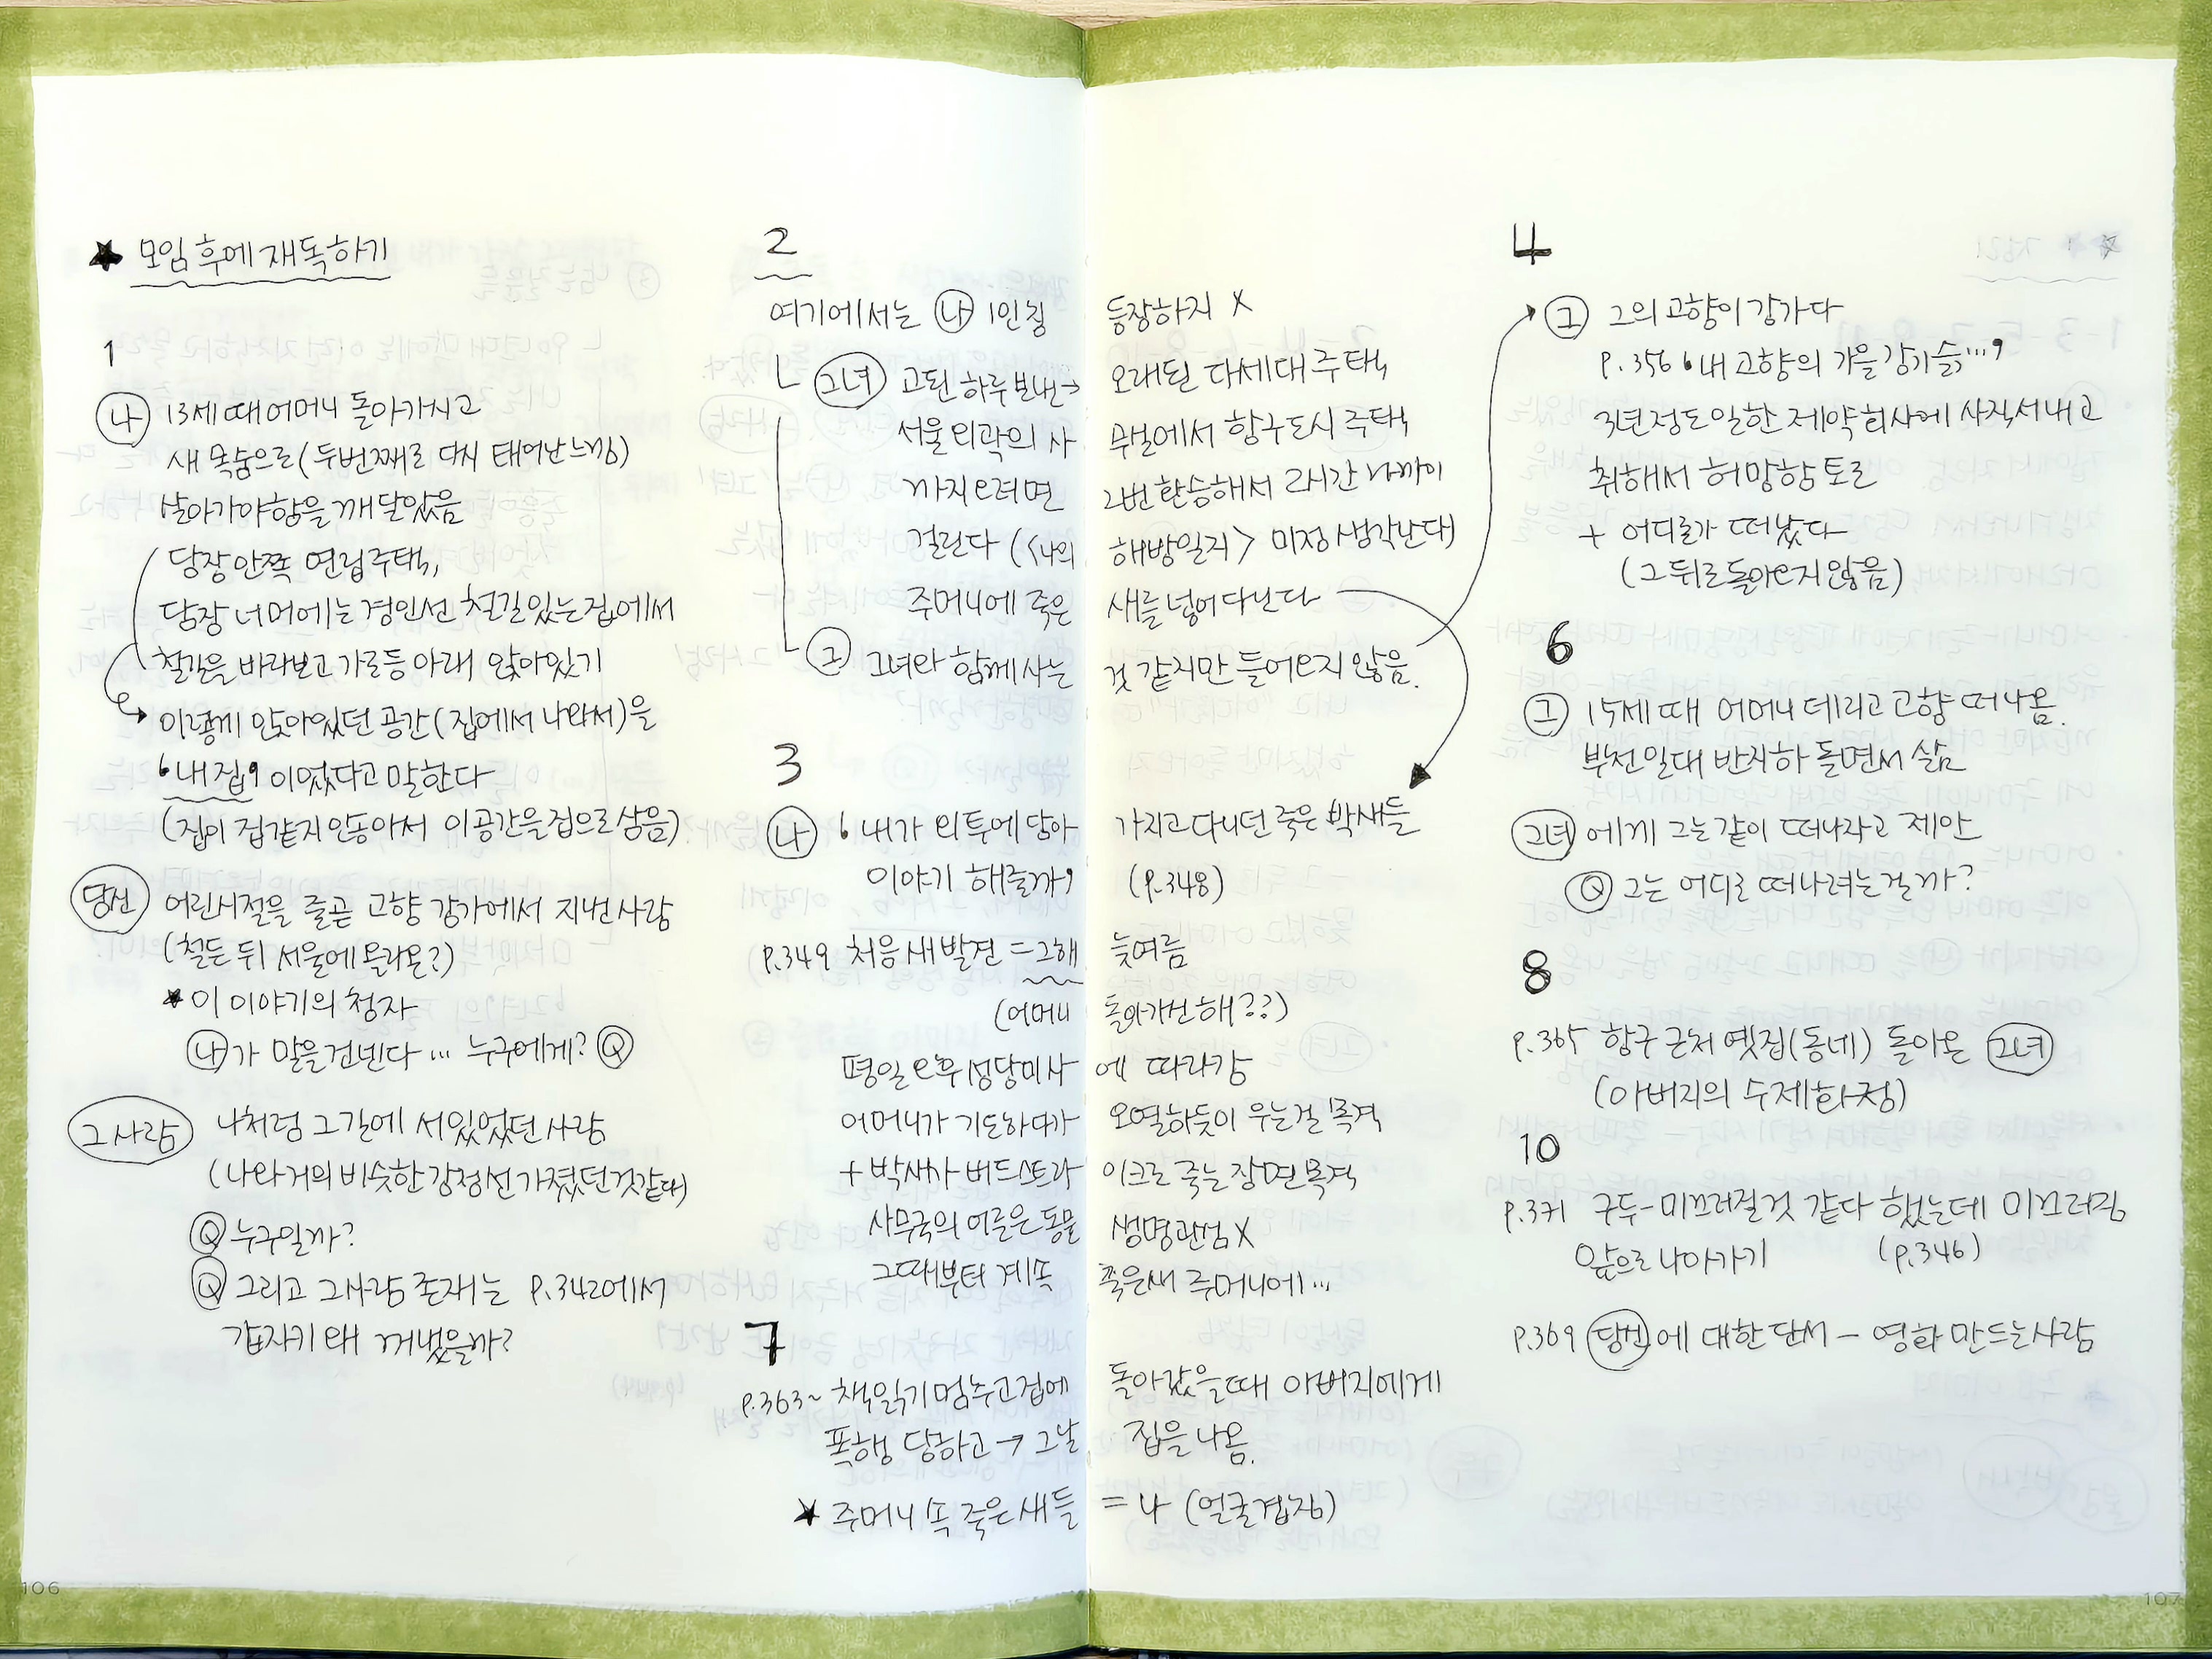 ★ 모임 후에 재독하기
1
나 13세 때 어머니 돌아가시고
새 목숨으로 (두번째로 다시 태어난 느낌)
살아가야함을 깨달았음
담장 안쪽 연립주택,
담장 너머에는 경인선 철길 있는 집에서
철길을 바라보고 가로등 아래 앉아있기
이렇게 앉아있던 공간(집에서 나와서)을
'내 집' 이었다고 말한다
(집이 집같지 않아서 이 공간을 집으로 삼음)
당신 어린시절을 줄곧 고향 강가에서 지낸 사람
(철든 뒤 서울에 올라온?)
★ 이 이야기의 청자
나가 말을 건넨다 … 누구에게? Q
그 사람 나처럼 그 길에 서있었던 사람
(나와 거의 비슷한 감정선 가졌던것같다)
Q 누구일까?
Q 그리고 그사람 존재는 p.342에서
갑자기 왜 꺼냈을까?
2
여기에서는 나 1인칭 등장하지 X
그녀 고된 하루 보내→ 오래된 다세대 주택,
서울 외곽의 사무실에서 항구도시 주택,
까지 오려면 2번 환승해서 2시간 너머이
걸린다 (<나의 해방일지> 미정 생각난다)
주머니에 죽은 새를 넣어 다닌다
그 그녀와 함께 사는 것 같지만 들어오지 않음.
3
나 '내가 외투에 담아 가지고 다니던 죽은 박새들
이야기 해줄까' (p.348)
p.349 처음 새 발견 = 그해 늦여름
(어머니 돌아가신 해??)
평일 오후 성당미사에 따라감
어머니가 기도하다가 오열하듯이 우는걸 목격
+ 박새가 버드스트라이크로 죽는 장면 목격
사무국의 어른은 동물 생명관점 X
그때부터 계속 죽은새 주머니에…
7
p.363~ 책읽기 멈추고 집에 돌아갔을 때 아버지에게
폭행 당하고 → 그날 집을 나옴.
★ 주머니 속 죽은 새들 = 나 (얼굴겹침)
4
그 그의 고향이 강가다
p.356 '내 고향의 가을 강기슭…'
3년 정도 일한 제약회사에 사직서 내고
취해서 허망함 토로
+ 어디론가 떠났다
(그 뒤로 돌아오지 않음)
6
그 15세 때 어머니 데리고 고향 떠나옴.
부천일대 반지하 돌면서 삶
그녀에게 그는 같이 떠나자고 제안
Q 그는 어디로 떠나려는걸까?
8
p.365 항구 근처 옛집(동네) 돌아온 그녀
(아버지의 수제화점)
10
p.371 구두-미끄러질것 같다 했는데 미끄러짐
앞으로 나아가기 (p.346)
p.369 당신에 대한 단서 – 영화 만드는 사람
106
107